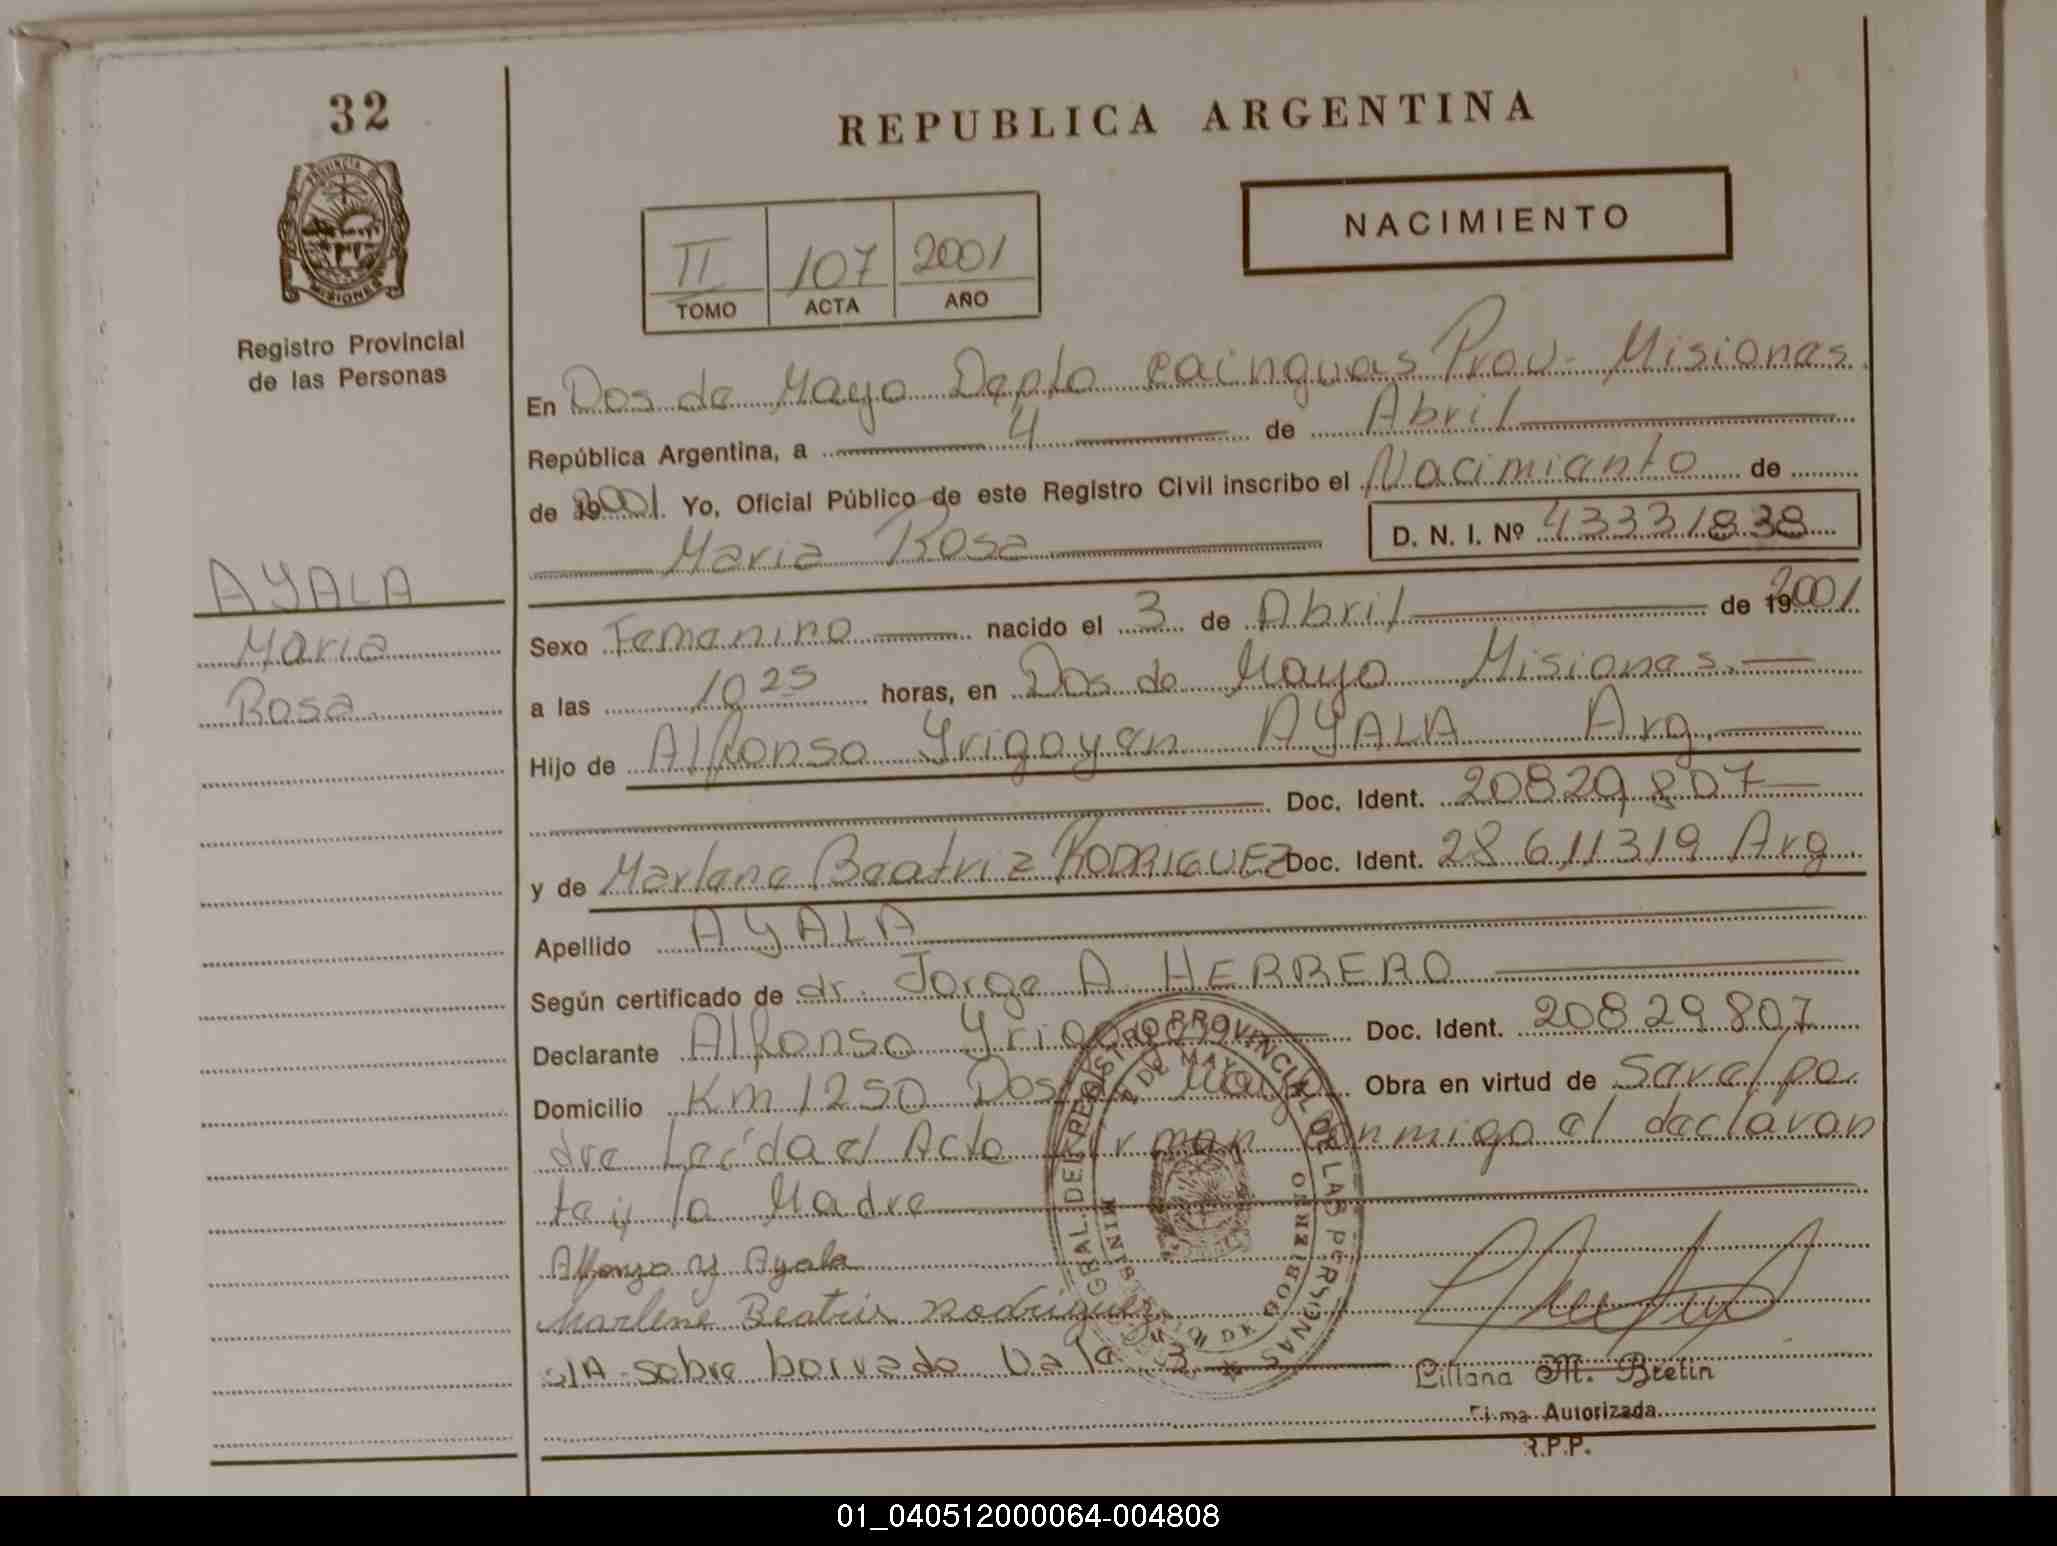 32
PROVINCIA DE
MISIONES
Registro Provincial
de las Personas
AYALA
Maria
Rosa
REPUBLICA ARGENTINA
NACIMIENTO
II 107 2001
TOMO ACTA AÑO
En Dos de Mayo Depto cainguas Prov. Misiones
República Argentina, a 4 de Abril
de 2001. Yo, Oficial Público de este Registro Civil inscribo el Nacimiento de
Maria Rosa D. N. I. Nº 43331838
Sexo Femenino nacido el 3 de Abril de 2001
a las 10 25 horas, en Dos de Mayo Misiones.
Hijo de Alfonso Yrigoyen AYALA Arg.
Doc. Ident. 20829807
y de Marlene Beatriz RODRIGUEZ Doc. Ident. 28611319 Arg.
Apellido AYALA
Según certificado de dr. Jorge A. HERRERO
Declarante Alfonso Doc. Ident. 20829807
Domicilio Km 1250 Dos de Mayo Obra en virtud de
dre Leída el Acta Firman Conmigo el declaran
te y la Madre
Alfonzo Y Ayala
Marlene Beatris Rodriguez
S/A sobre borrado Vale 3
REGISTRO PROVINCIAL DE LAS PERSONAS
2 DE MAYO
MINISTERIO DE GOBIERNO
Liliana M. Bretin
Firma Autorizada
R.P.P.
01_040512000064-004808